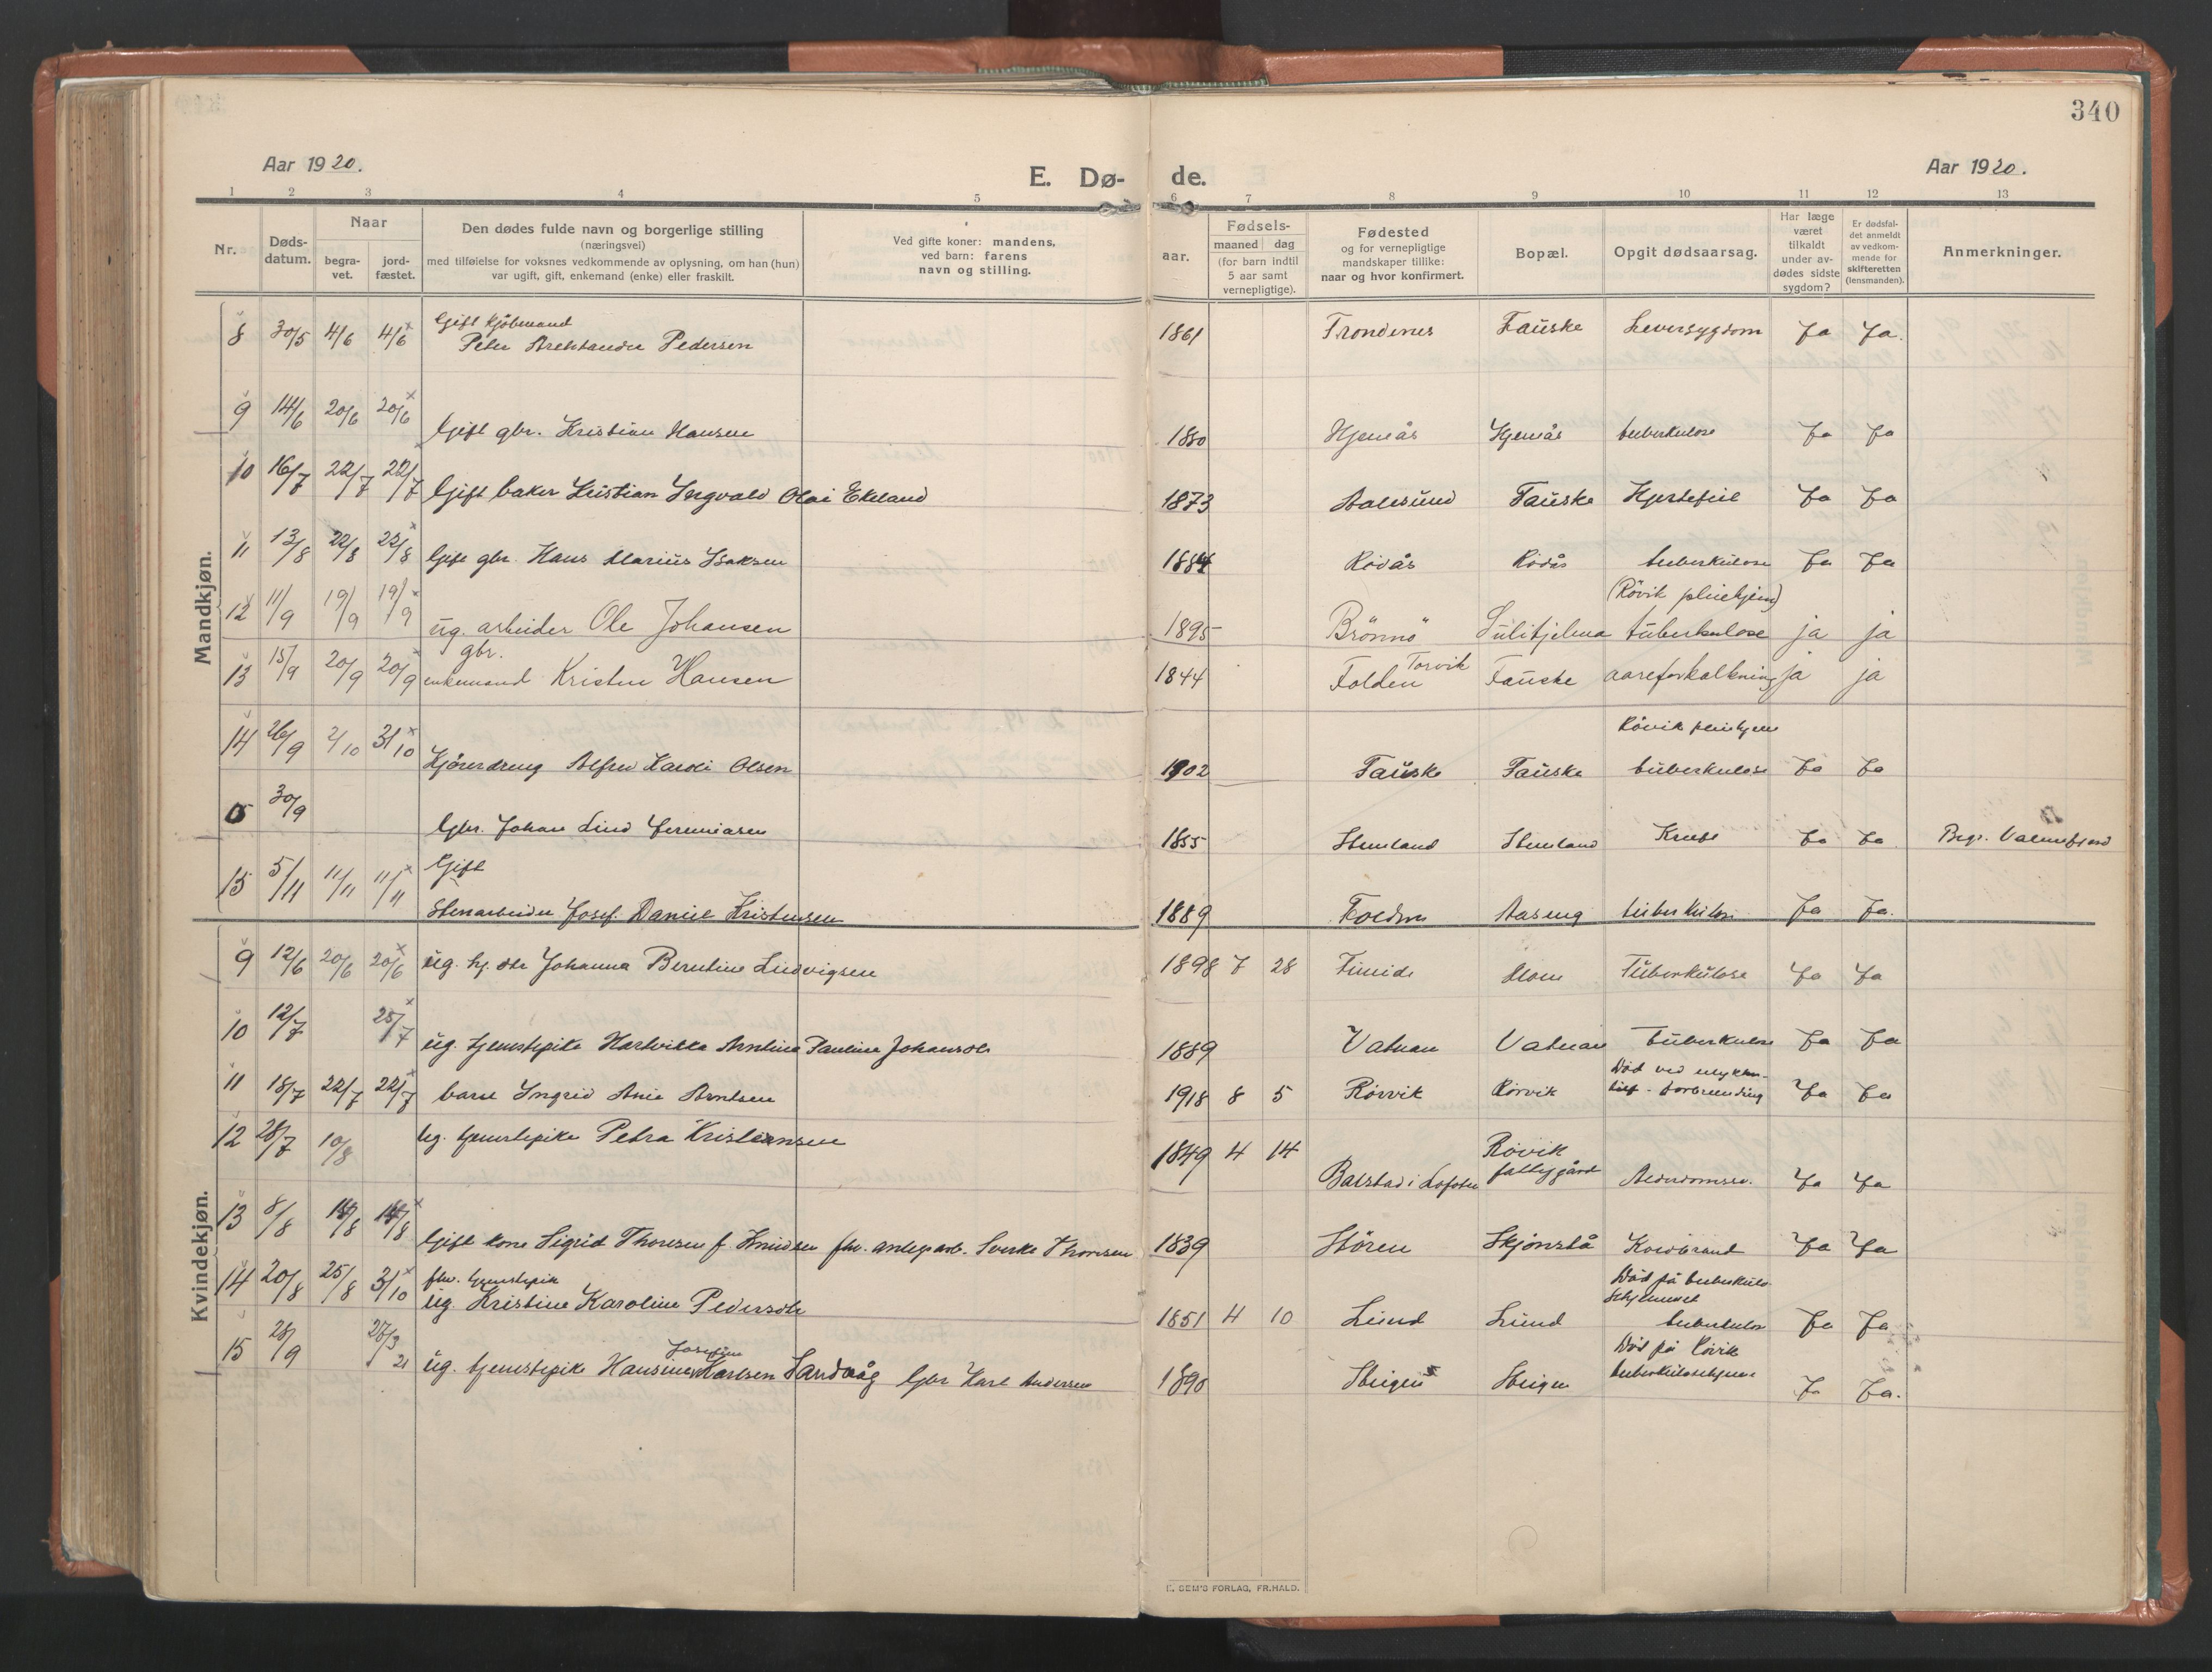 340
Aar 1920.
E. Dø- de.
Aar 1920.
1 2 3 4 5 6 7 8 9 10 11 12 13
Nr.
Døds-
datum.
Naar
begra-
vet.
jord-
fæstet.
Den dødes fulde navn og borgerlige stilling
(næringsvei)
med tilføielse for voksnes vedkommende av oplysning, om han (hun)
var ugift, gift, enkemand (enke) eller fraskilt.
Ved gifte koner: mandens,
ved barn: farens
navn og stilling.
Fødsels-
aar.
maaned dag
(for barn indtil
5 aar samt
vernepligtige).
Fødested
og for vernepligtige
mandskaper tillike:
naar og hvor konfirmert.
Bopæl.
Opgit dødsaarsag.
Har læge
været
tilkaldt
under av-
dødes sidste
sygdom?
Er dødsfal-
det anmeldt
av vedkom-
mende for
skifteretten
(lensmanden).
Anmerkninger.
Mandkjøn.
Gift kjøbmand
8 30/5 4/6 4/6 Peter Pedersen 1861 Trondenes Fauske Leversygdom Ja Ja.
9 14/6 20/6 20/6 Gift gbr. Kristian Hansen 1880 Hjemås Hjemås tuberkulose Ja Ja
10 16/7 22/7 22/7 Gift baker Kristian Ingvald Olai Ekeland 1873 Aalesund Fauske Hjertefeil Ja Ja
11 13/8 22/8 22/8 Gift gbr. Hans Marius Isaksen 1884 Rødås Rødås tuberkulose Ja Ja
(Rövik pleiehjem)
12 11/9 19/9 19/9 ug. arbeider Ole Johansen 1895 Brönnö Sulitjelma tuberkulose ja ja
gbr.
Torvik
13 15/9 20/9 20/9 enkemand Kristen Hansen 1844 Folden Fauske aareforkalkning ja ja
Rövik pleiehjem
14 26/9 2/10 3/10 Kjøredreng Alfred Karoli Olsen 1902 Fauske Fauske tuberkulose Ja Ja
0 30/9 Gbr. Johan Lind Jeremiasen 1855 Stemland Stemland Kræft Ja Ja Begr. Valnesfjord
Gift
15 5/11 11/11 11/11 Stenarbeider Josef Daniel Kristensen 1889 Folden Aaseng tuberkulose Ja Ja.
Kvindekjøn.
9 12/6 20/6 20/6 ug. hj. dtr Johanna Berntine Ludvigsen 1898 7 28 Fineid Moen Tuberkulose Ja Ja
10 12/7 25/7 ug. tjenestepike Hartvikka Arntine Pauline Johansdtr 1889 Vatnan Vatnan Tuberkulose Ja Ja
Död ved ulykkes-
11 18/7 22/7 22/7 barn Ingrid Anie Arntsen 1918 8 5 Rörvik Rörvik tilf - forbrending Ja Ja
12 28/7 10/8 Ug. tjenestepike Petra Kristiansen 1849 4 14 Balstad i Lofoten Rövik fattiggård Alderdomssv. Ja Ja
13 8/8 14/8 14/8 Gift kone Sigrid Thoresen f. Knudsen fhv. anlegsarb. Sverke Thoresen 1839 Stören Skjönstå Koldbrand Ja Ja
fhv. tjenestepik
Död på tuberkulo-
sehjemmet
14 20/8 25/8 3/10 ug. Kristine Karoline Pedersdtr 1851 4 10 Lund Lund tuberkulose Ja Ja
Josefine
Död på Rövik
tuberkulosehjem
15 28/9 27/3 21 ug. tjenestepik Hansine Karlsen Sandvåg Gbr Karl Andersen 1890 Steigen Steigen Ja Ja.
E. SEM'S FORLAG, FR.HALD.